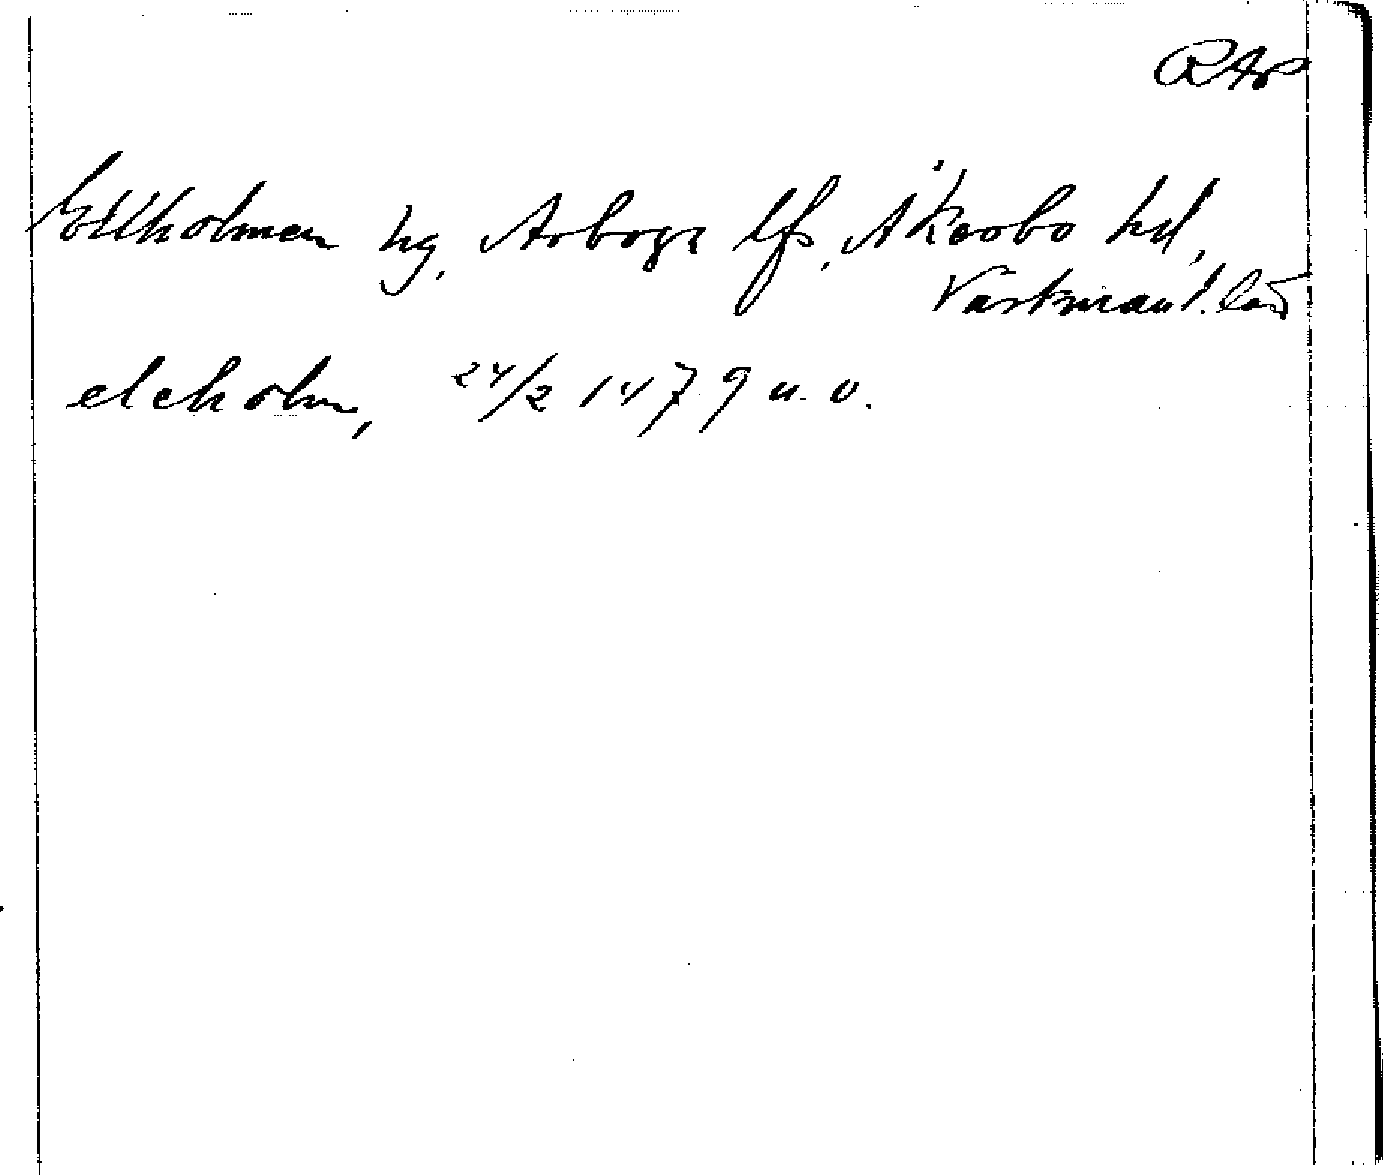 RAp
Ekholmen hg, Arboga lfs, Åkerbo hd,
Västmanl. län
elcholm, 24/2 1479 u. o.